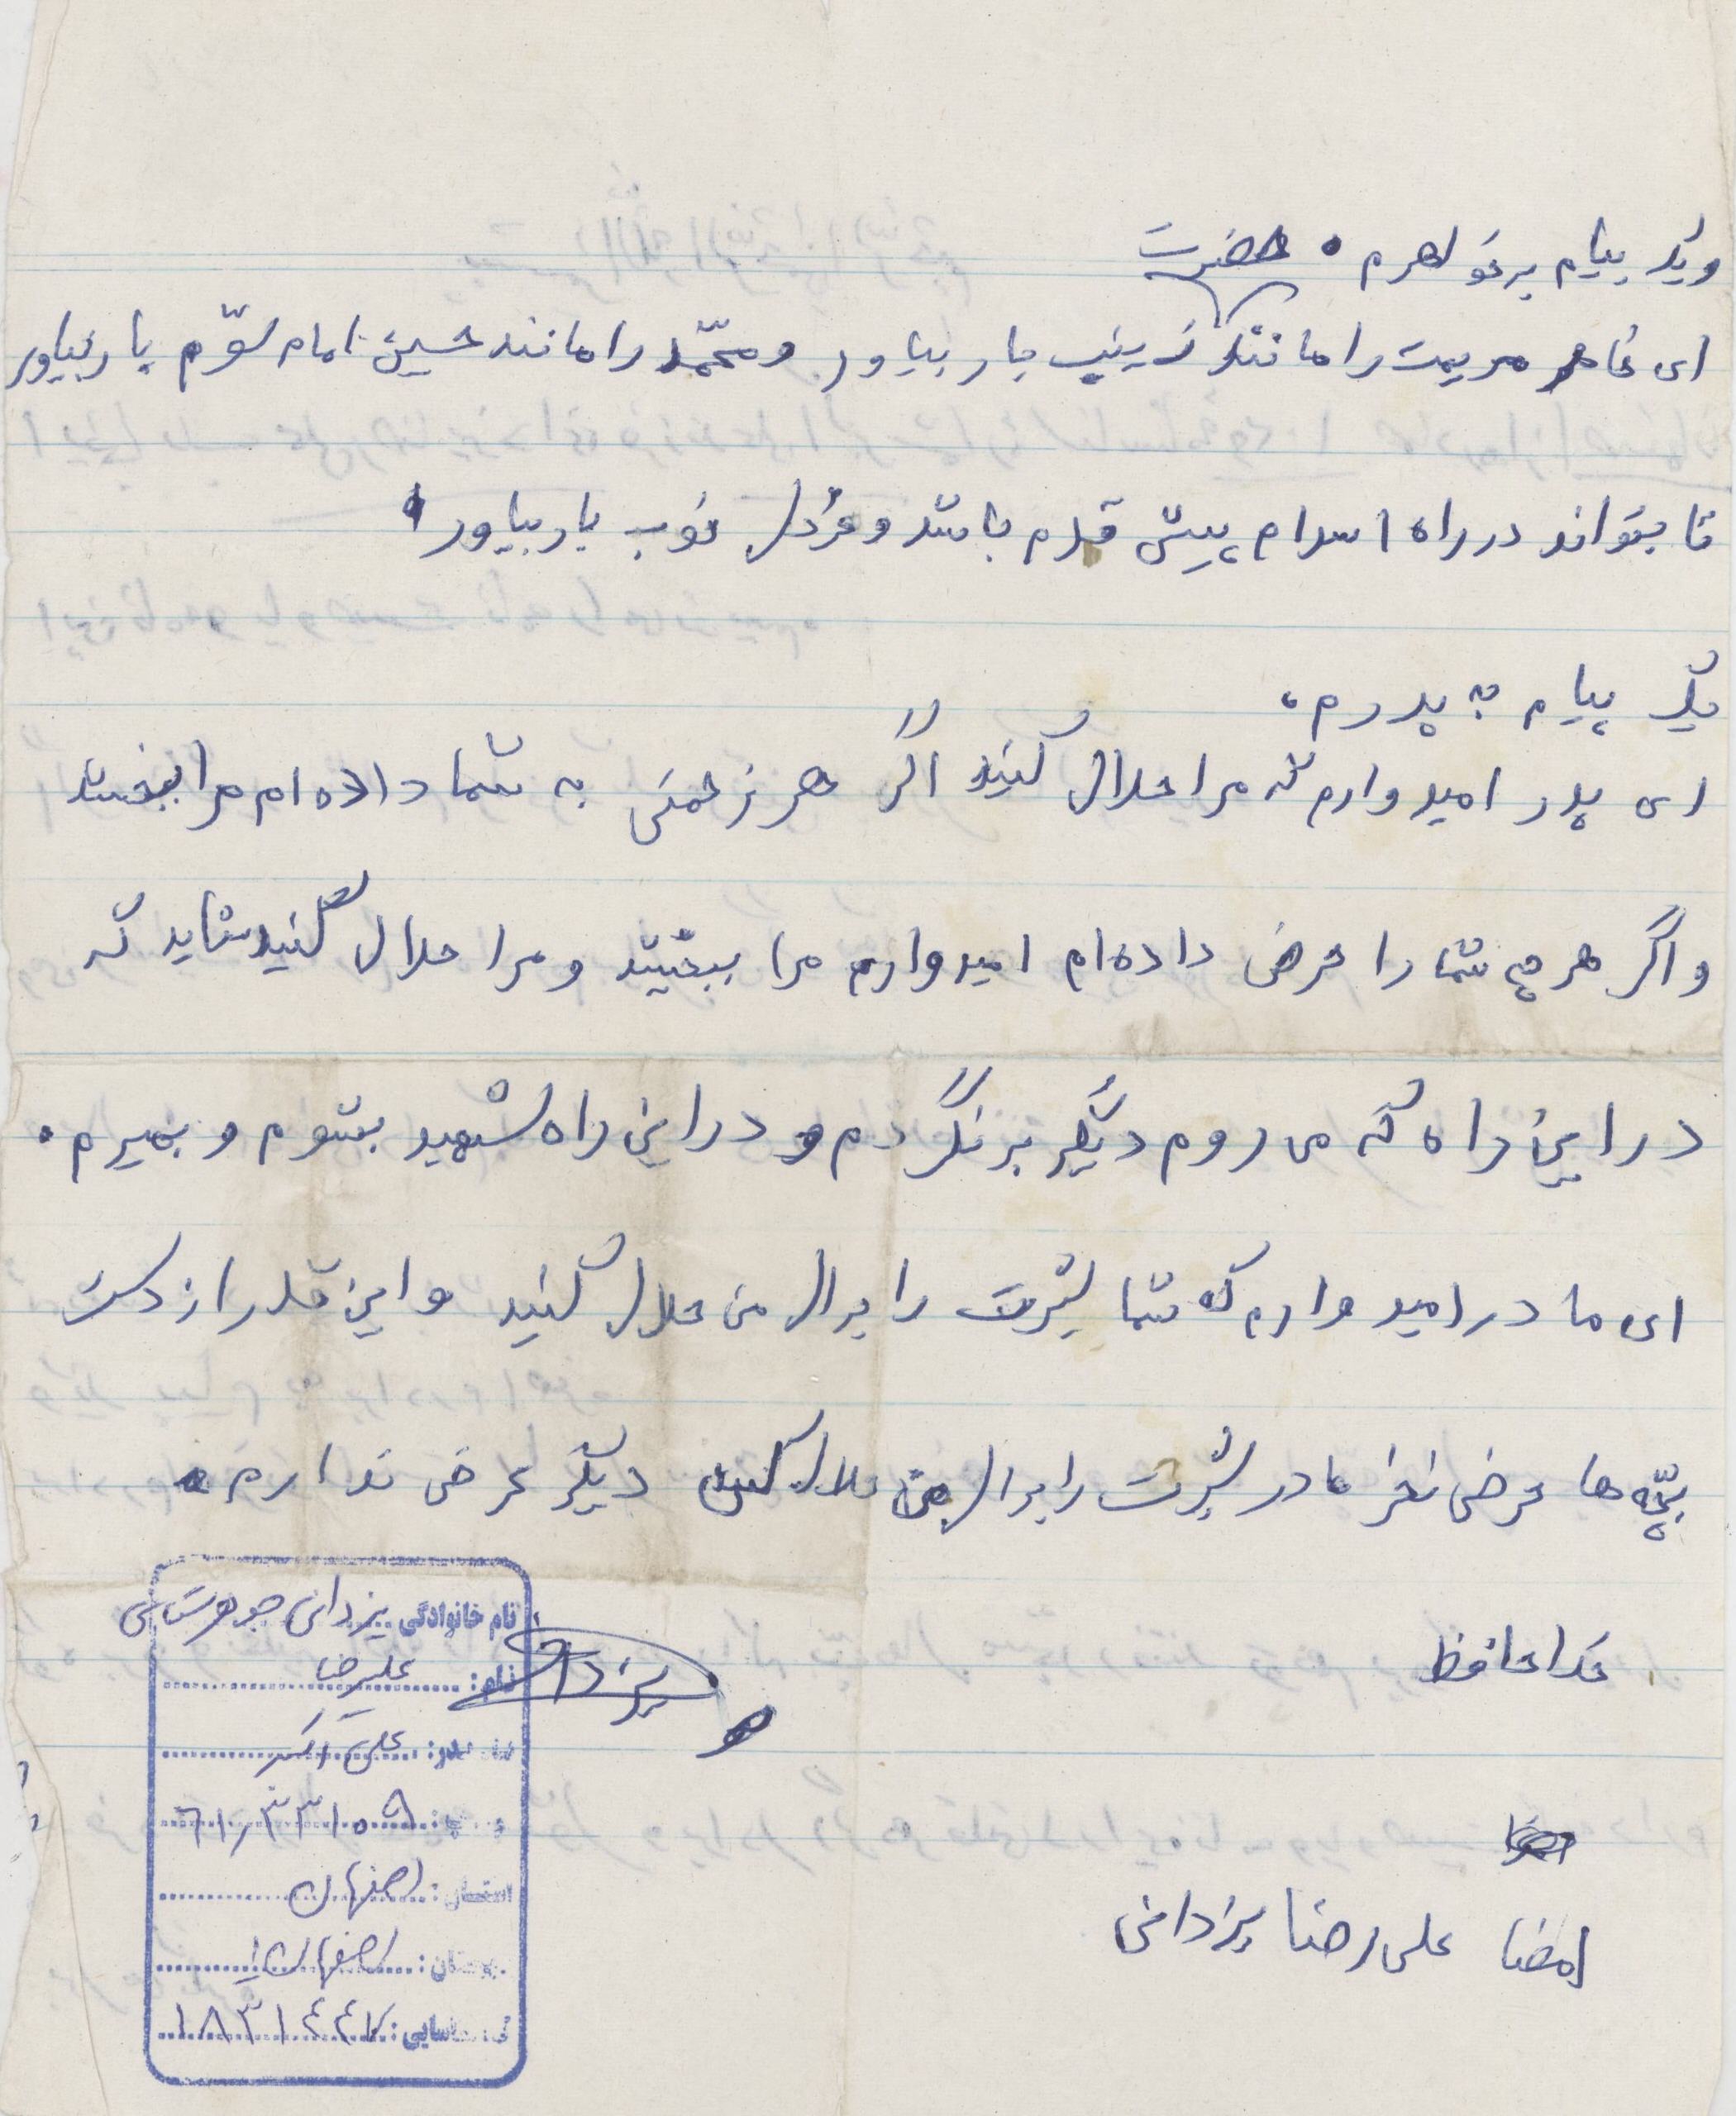 ویک پیام بر خواهرم . حضرت
ای خاهر مریمت را مانند زینب بار بیاور و محمّد را مانند حسین امام سوّم بار بیاور
تا بتواند در راه اسلام پیش قدم باشد و خوب بار بیاور
یک پیام به پدرم.
ای پدر امیدوارم که مرا حلال کنید اگر هر زحمتی به شما داده‌ام مرا ببخشید
و اگر هر چه شما را حرض داده‌ام امیدوارم مرا ببخشید و مرا حلال کنید شاید که
در این راه که می روم دیگر برنگردم و در این راه شهید بشوم و بمیرم.
ای مادر امیدوارم که شما شیرت را برای من حلال کنید و این قدر از دست
بچّه ها حرض نخر مادر شیرت را برای من حلال کنید دیگر عرضی ندارم
خداحافظ
امضا علی رضا یزدانی
یزدانی
نام خانوادگی یزدانی جوهرستانی
نام: علیرضا
نام پدر: علی اکبر
٦١/٣٣١٠٩
استان: اصفهان
شهرستان: اصفهان
کد شناسایی: ١٨٣١٤٤٧